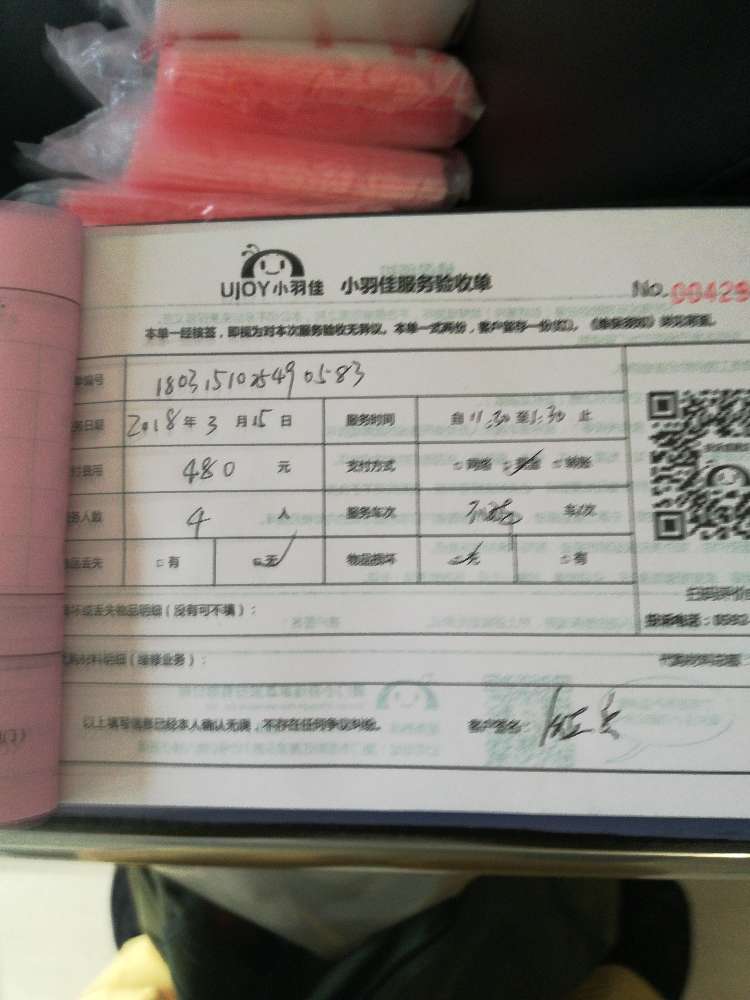 UJOY小羽佳 小羽佳服务验收单 No. 00429
本单一经接签，即视为对本次服务验收无异议。本单一式两份，客户留存一份(红)。
编号 180315102549 0583
务日期 2018年3月15日 服务时间 自11:30至1:30止
费用 480元 支付方式 □网络 □现金 □转账
务人数 4人 服务车次 车/次
品丢失 □有 □无 物品损坏 □无 □有
坏或丢失物品明细（没有可不填）：
投诉电话：0592-
材料明细（维修业务）：
以上填写信息已经本人确认无误，不存在任何争议纠纷。 客户签名：